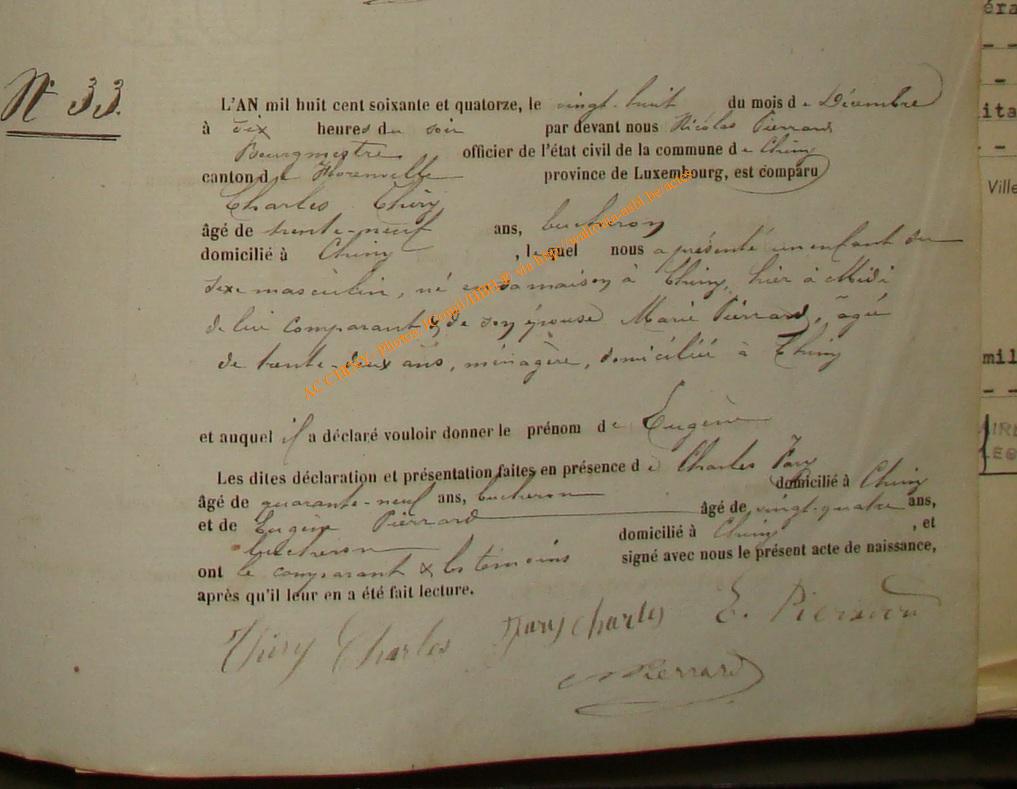 N° 33.
L'AN mil huit cent soixante et quatorze, le vingt-huit du mois de Décembre
à dix heures du soir par devant nous Nicolas Pierrard
Bourgmestre officier de l'état civil de la commune de Chiny
canton de Florenville province de Luxembourg, est comparu
Charles Thiry
âgé de trente-neuf ans, bucheron
domicilié à Chiny, lequel nous a présenté un enfant du
sexe masculin, né en sa maison à Chiny, hier à Midi
de lui comparant & de son épouse Marie Pierrard, âgée
de trente-deux ans, ménagère, domiciliée à Chiny
et auquel il a déclaré vouloir donner le prénom de Eugène
Les dites déclaration et présentation faites en présence de Charles
âgé de quarante-neuf ans, bucheron domicilié à Chiny
et de Eugène Pierrard âgé de vingt-quatre ans,
bucheron domicilié à Chiny, et
ont le comparant & les témoins signé avec nous le présent acte de naissance,
après qu'il leur en a été fait lecture.
Thiry Charles charles E. Pierrard
NPierrard
éra
ita
Ville
mil
AIRE